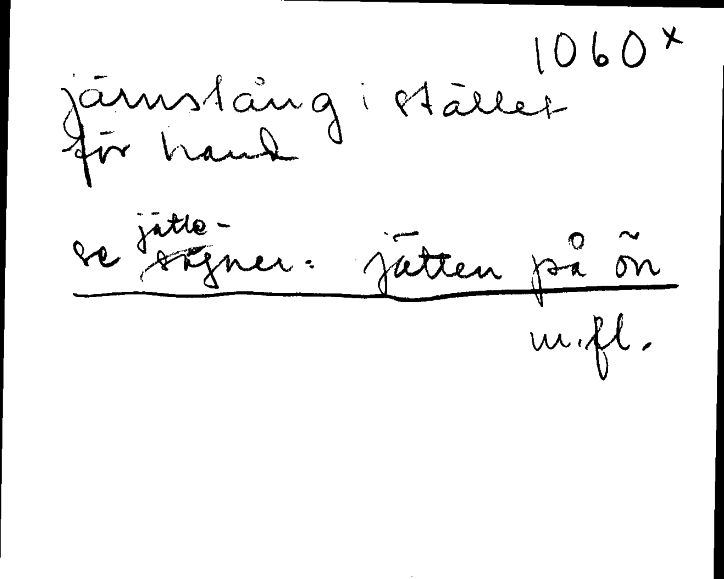 1060 x
järnstång i stället
för hand
jätte-
se sägner: jätten på ön
m.fl.